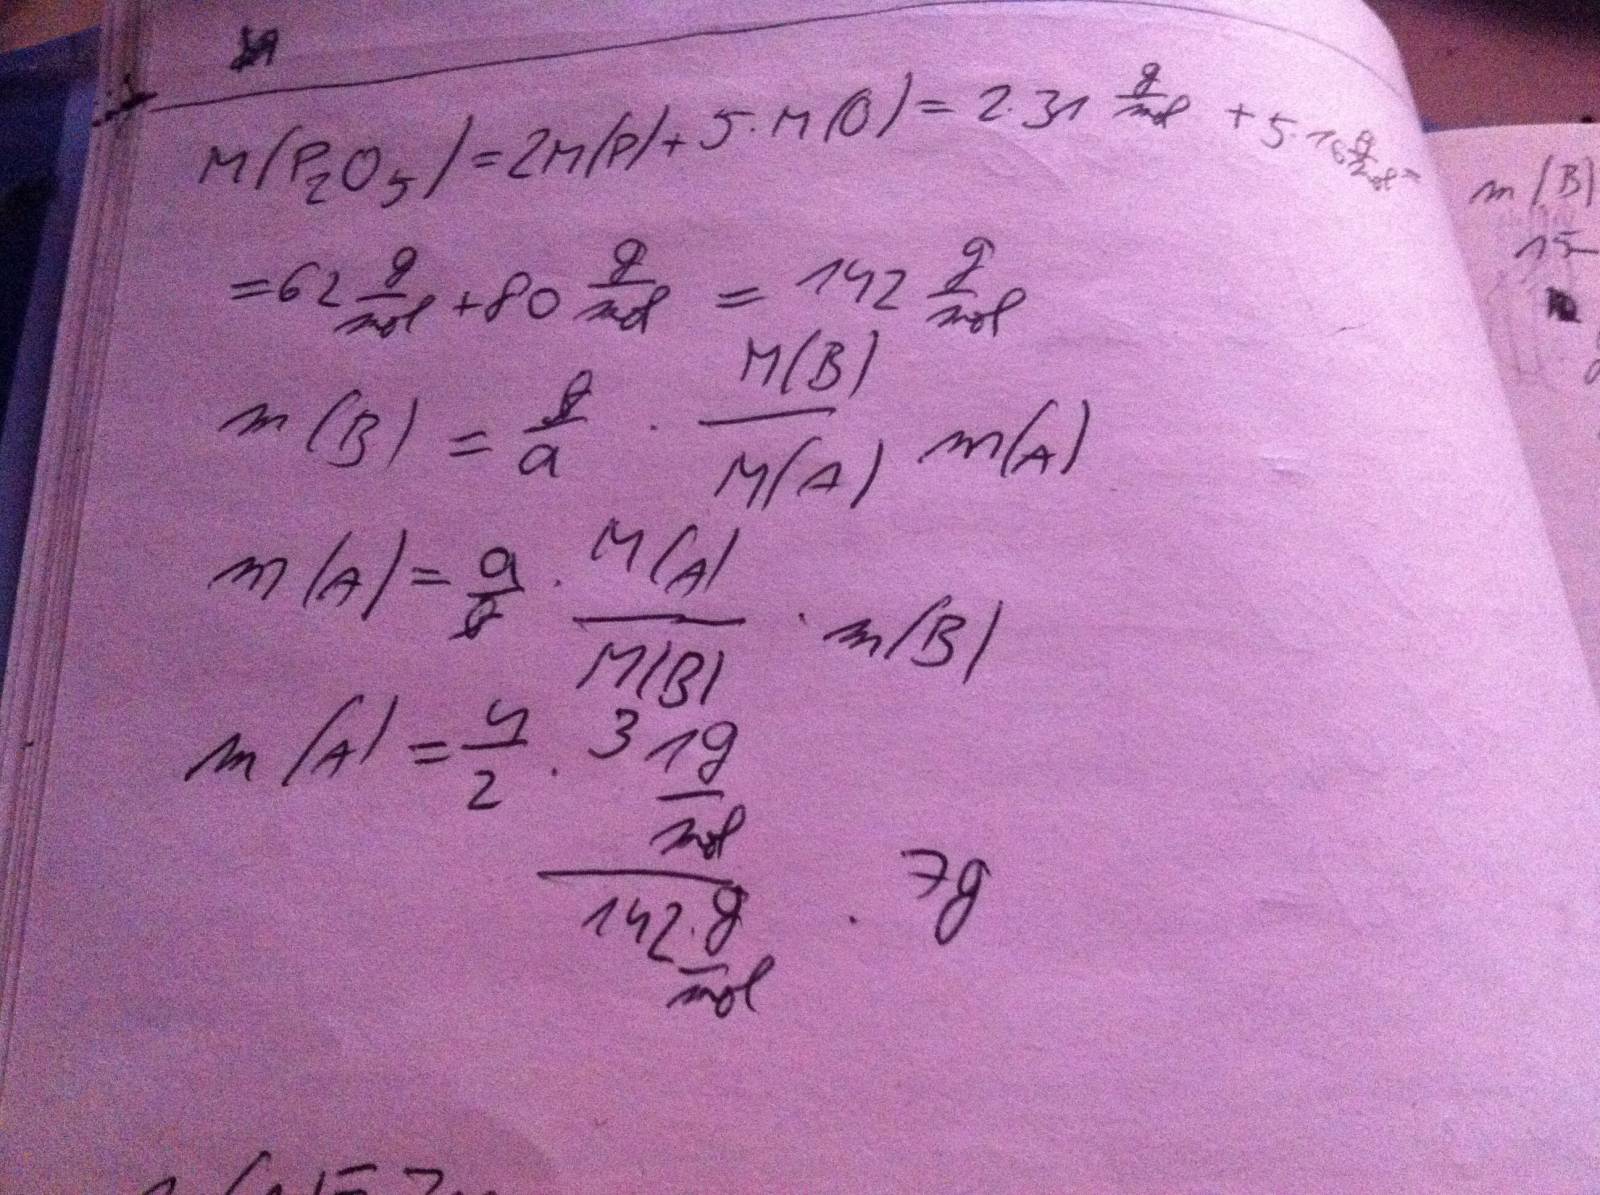 M(P₂O₅) = 2M(P) + 5·M(O) = 2·31 g/mol + 5·16 g/mol =
= 62 g/mol + 80 g/mol = 142 g/mol
m(B) = b/a · M(B)/M(A) m(A)
m(A) = a/b · M(A)/M(B) · m(B)
m(A) = 4/2 · 31 g/mol / 142·g/mol · 7g
m(B)
15